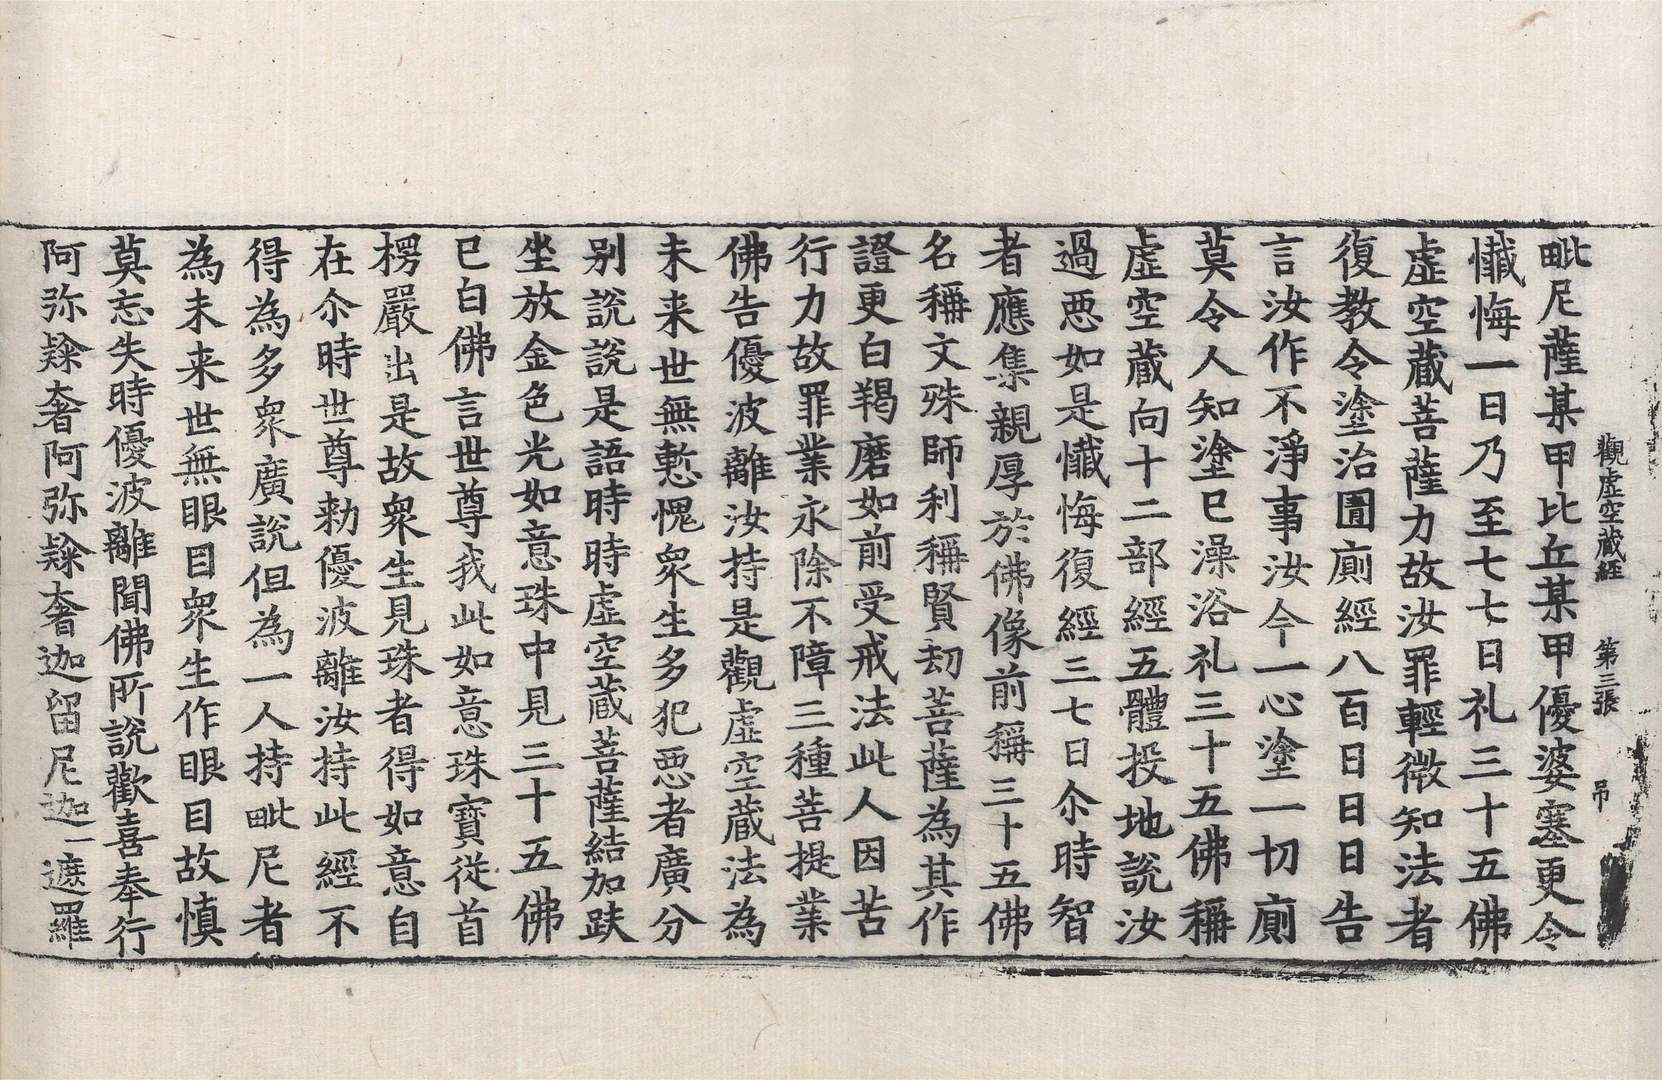 觀虛空藏經 第三張 吊
毗尼薩某甲比丘某甲優婆塞更令
懺悔一日乃至七七日礼三十五佛
虛空藏菩薩力故汝罪輕微知法者
復教令塗治圊廁經八百日日日告
言汝作不淨事汝今一心塗一切廁
莫令人知塗已澡浴礼三十五佛稱
虛空藏向十二部經五體投地說汝
過惡如是懺悔復經三七日尒時智
者應集親厚於佛像前稱三十五佛
名稱文殊師利稱賢刼菩薩為其作
證更白羯磨如前受戒法此人因苦
行力故罪業永除不障三種菩提業
佛告優波離汝持是觀虛空藏法為
未来世無慙愧衆生多犯惡者廣分
别說說是語時時虛空藏菩薩結加趺
坐放金色光如意珠中見三十五佛
已白佛言世尊我此如意珠寶從首
楞嚴出是故衆生見珠者得如意自
在尒時世尊勑優波離汝持此經不
得為多衆廣說但為一人持毗尼者
為未来世無眼目衆生作眼目故慎
莫忘失時優波離聞佛所說歡喜奉行
阿弥𣗋奢阿弥𣗋奢迦留尼迦一遮羅